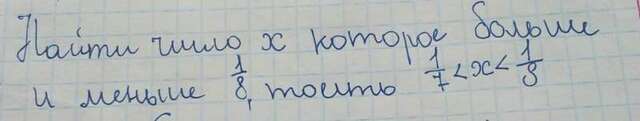 Найти число x которое больше
и меньше 1/8, тоить 1/7 < x < 1/9